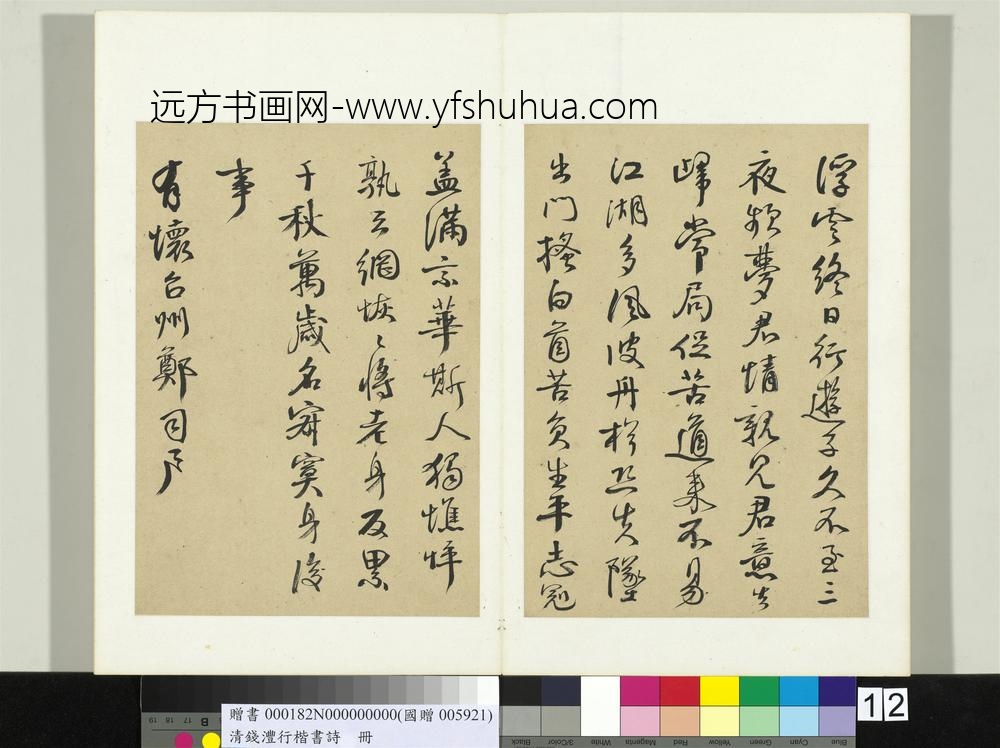 远方书画网-www.yfshuhua.com
浮雲終日行遊子久不至三
夜頻夢君情親見君意告
歸常局促苦道來不易
江湖多風波舟楫恐失墜
出門搔白首苦負生平志冠
盖滿京華斯人獨憔悴
孰云網恢〻將老身反累
千秋萬歲名寂寞身後
事
有懷台州鄭司戶
贈書 000182N000000000(國贈 005921)
清錢灃行楷書詩 冊
12
19 18 17
B
Black
3/Color
White
Magenta
Red
Yellow
Green
Cyan
Blue